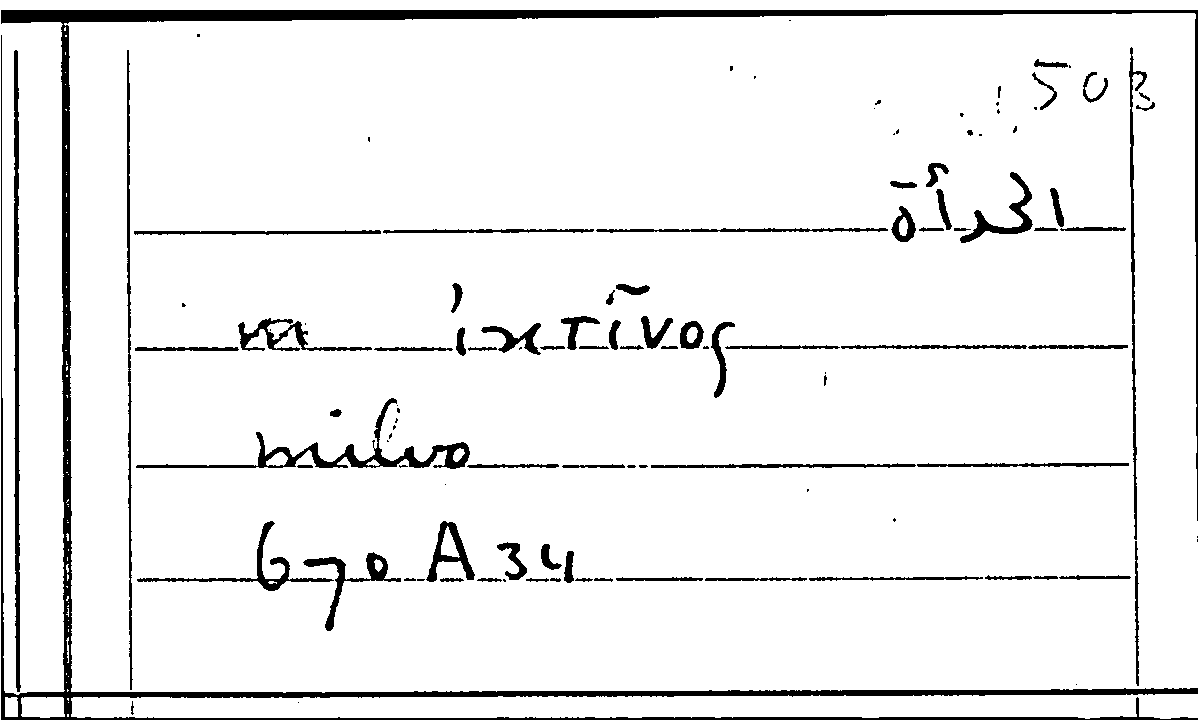 503
الحدأة
ἰκτῖνος
milvo
670 A 34